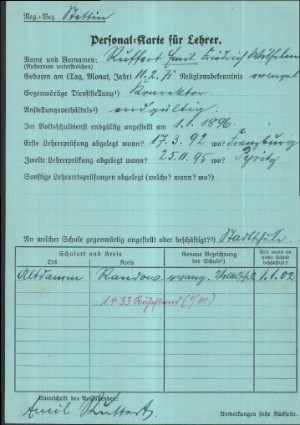 Reg.-Bez. Stettin
Personal-Karte für Lehrer.
Name und Vornamen: Ruffert Emil Friedrich Wilhelm
(Rufnamen unterstreichen)
Geboren am (Tag, Monat, Jahr) 11.2.71 Religionsbekenntnis evangel.
Gegenwärtige Dienststellung¹) Konrektor
Anstellungsverhältnis²) endgültig
Im Volksschuldienst endgültig angestellt am 1.1.1896.
Erste Lehrerprüfung abgelegt wann? 17.3.92 wo? Franzburg
Zweite Lehrerprüfung abgelegt wann? 25.11.95 wo? Pyritz
Sonstige Lehramtsprüfungen abgelegt (welche? wann? wo?)
An welcher Schule gegenwärtig angestellt oder beschäftigt?³) Stadtschule
Schulort und Kreis
Ort Kreis
Genaue Bezeichnung der Schule⁴)
Altdamm Randow evang. 1.1.02
1.4.33 Ruhestand
Unterschrift des
Emil Ruffert.
Anmerkungen siehe Rückseite.